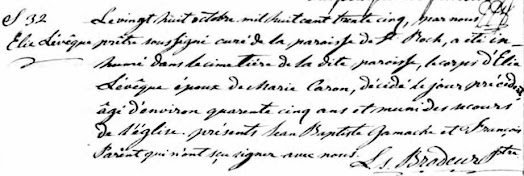 S 32
Elie Lévêque
Le vingt huit octobre mil huit cent trente cinq, par nous
prêtre soussigné curé de la paroisse de St Roch, a été in
humé dans le cimetière de la dite paroisse, le corps d'Elie
Lévêque époux de Marie Caron, décédé le jour précédent
âgé d'environ quarente cinq ans et muni des secours
de l'église. présents Jean Baptiste Gamache et François
Parent qui n'ont sçu signer avec nous.
Ls Brodeur Ptre